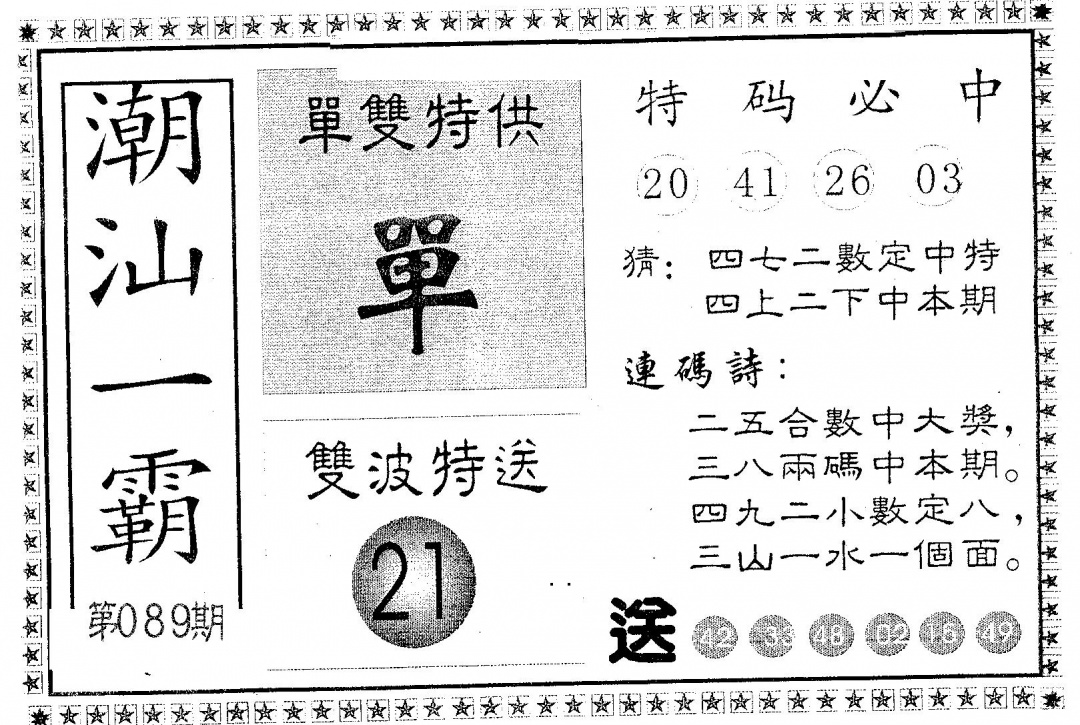 潮汕一霸
第089期
單雙特供
單
雙波特送
21
特码必中
20 41 26 03
猜：四七二數定中特
四上二下中本期
連碼詩：
二五合數中大獎，
三八兩碼中本期。
四九二小數定八，
三山一水一個面。
送 42 33 48 02 16 49